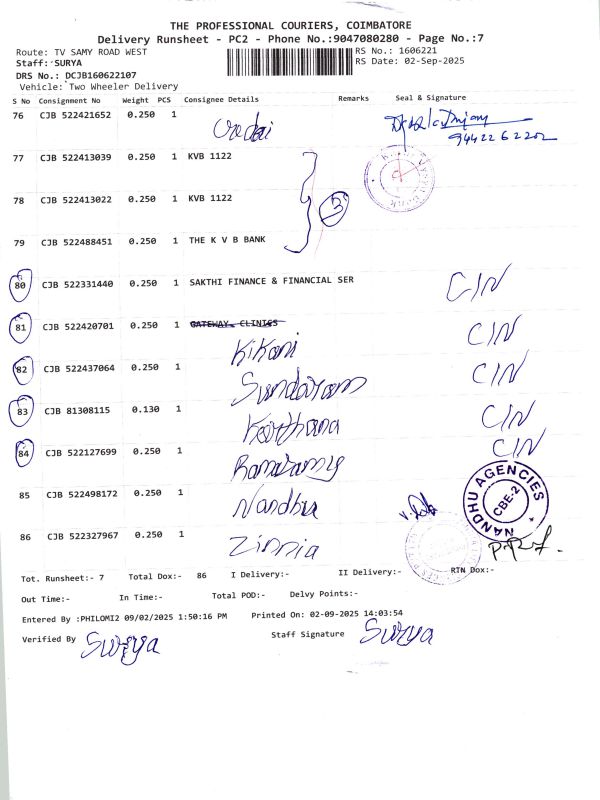 THE PROFESSIONAL COURIERS, COIMBATORE
Delivery Runsheet - PC2 - Phone No.:9047080280 - Page No.:7
Route: TV SAMY ROAD WEST RS No.: 1606221
Staff: SURYA RS Date: 02-Sep-2025
DRS No.: DCJB160622107
Vehicle: Two Wheeler Delivery
S No Consignment No Weight PCS Consignee Details Remarks Seal & Signature
76 CJB 522421652 0.250 1
9442262202
77 CJB 522413039 0.250 1 KVB 1122
78 CJB 522413022 0.250 1 KVB 1122
3
79 CJB 522488451 0.250 1 THE K V B BANK
80 CJB 522331440 0.250 1 SAKTHI FINANCE & FINANCIAL SER C/N
81 CJB 522420701 0.250 1 GATEWAY CLINICS C/N
Kikani
82 CJB 522437064 0.250 1 C/N
Sundaram
83 CJB 81308115 0.130 1 C/N
84 CJB 522127699 0.250 1 C/N
85 CJB 522498172 0.250 1 Nandhu
NANDHU AGENCIES CBE-2
86 CJB 522327967 0.250 1 Zinnia
Tot. Runsheet:- 7 Total Dox:- 86 I Delivery:- II Delivery:- RTN Dox:-
Out Time:- In Time:- Total POD:- Delvy Points:-
Entered By :PHILOMI2 09/02/2025 1:50:16 PM Printed On: 02-09-2025 14:03:54
Verified By Surya Staff Signature Surya